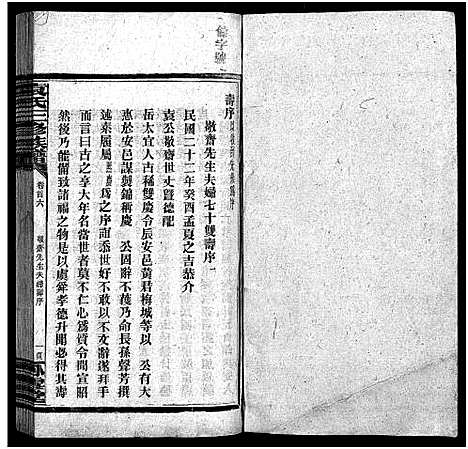 壽序
敬齋先生夫婦七十雙壽序
民國二十二年癸酉孟夏之吉恭介
袁公敬齋世丈暨德配
岳太宜人古稀雙慶令辰安邑黄君梅城等以 公有大
惠於安邑謀製錦稱慶 公固辭不獲乃命長孫聲芳撰
述來屬屬爲之序誼忝世好不敢以不文辭遂拜手
而言曰古之享大年名當世者莫不仁心爲質令聞宣昭
然後乃能備致諸福之物是以虞舜孝德升聞必得其壽
袁氏三修族譜
卷首六
敬齋先生夫婦壽序
一頁